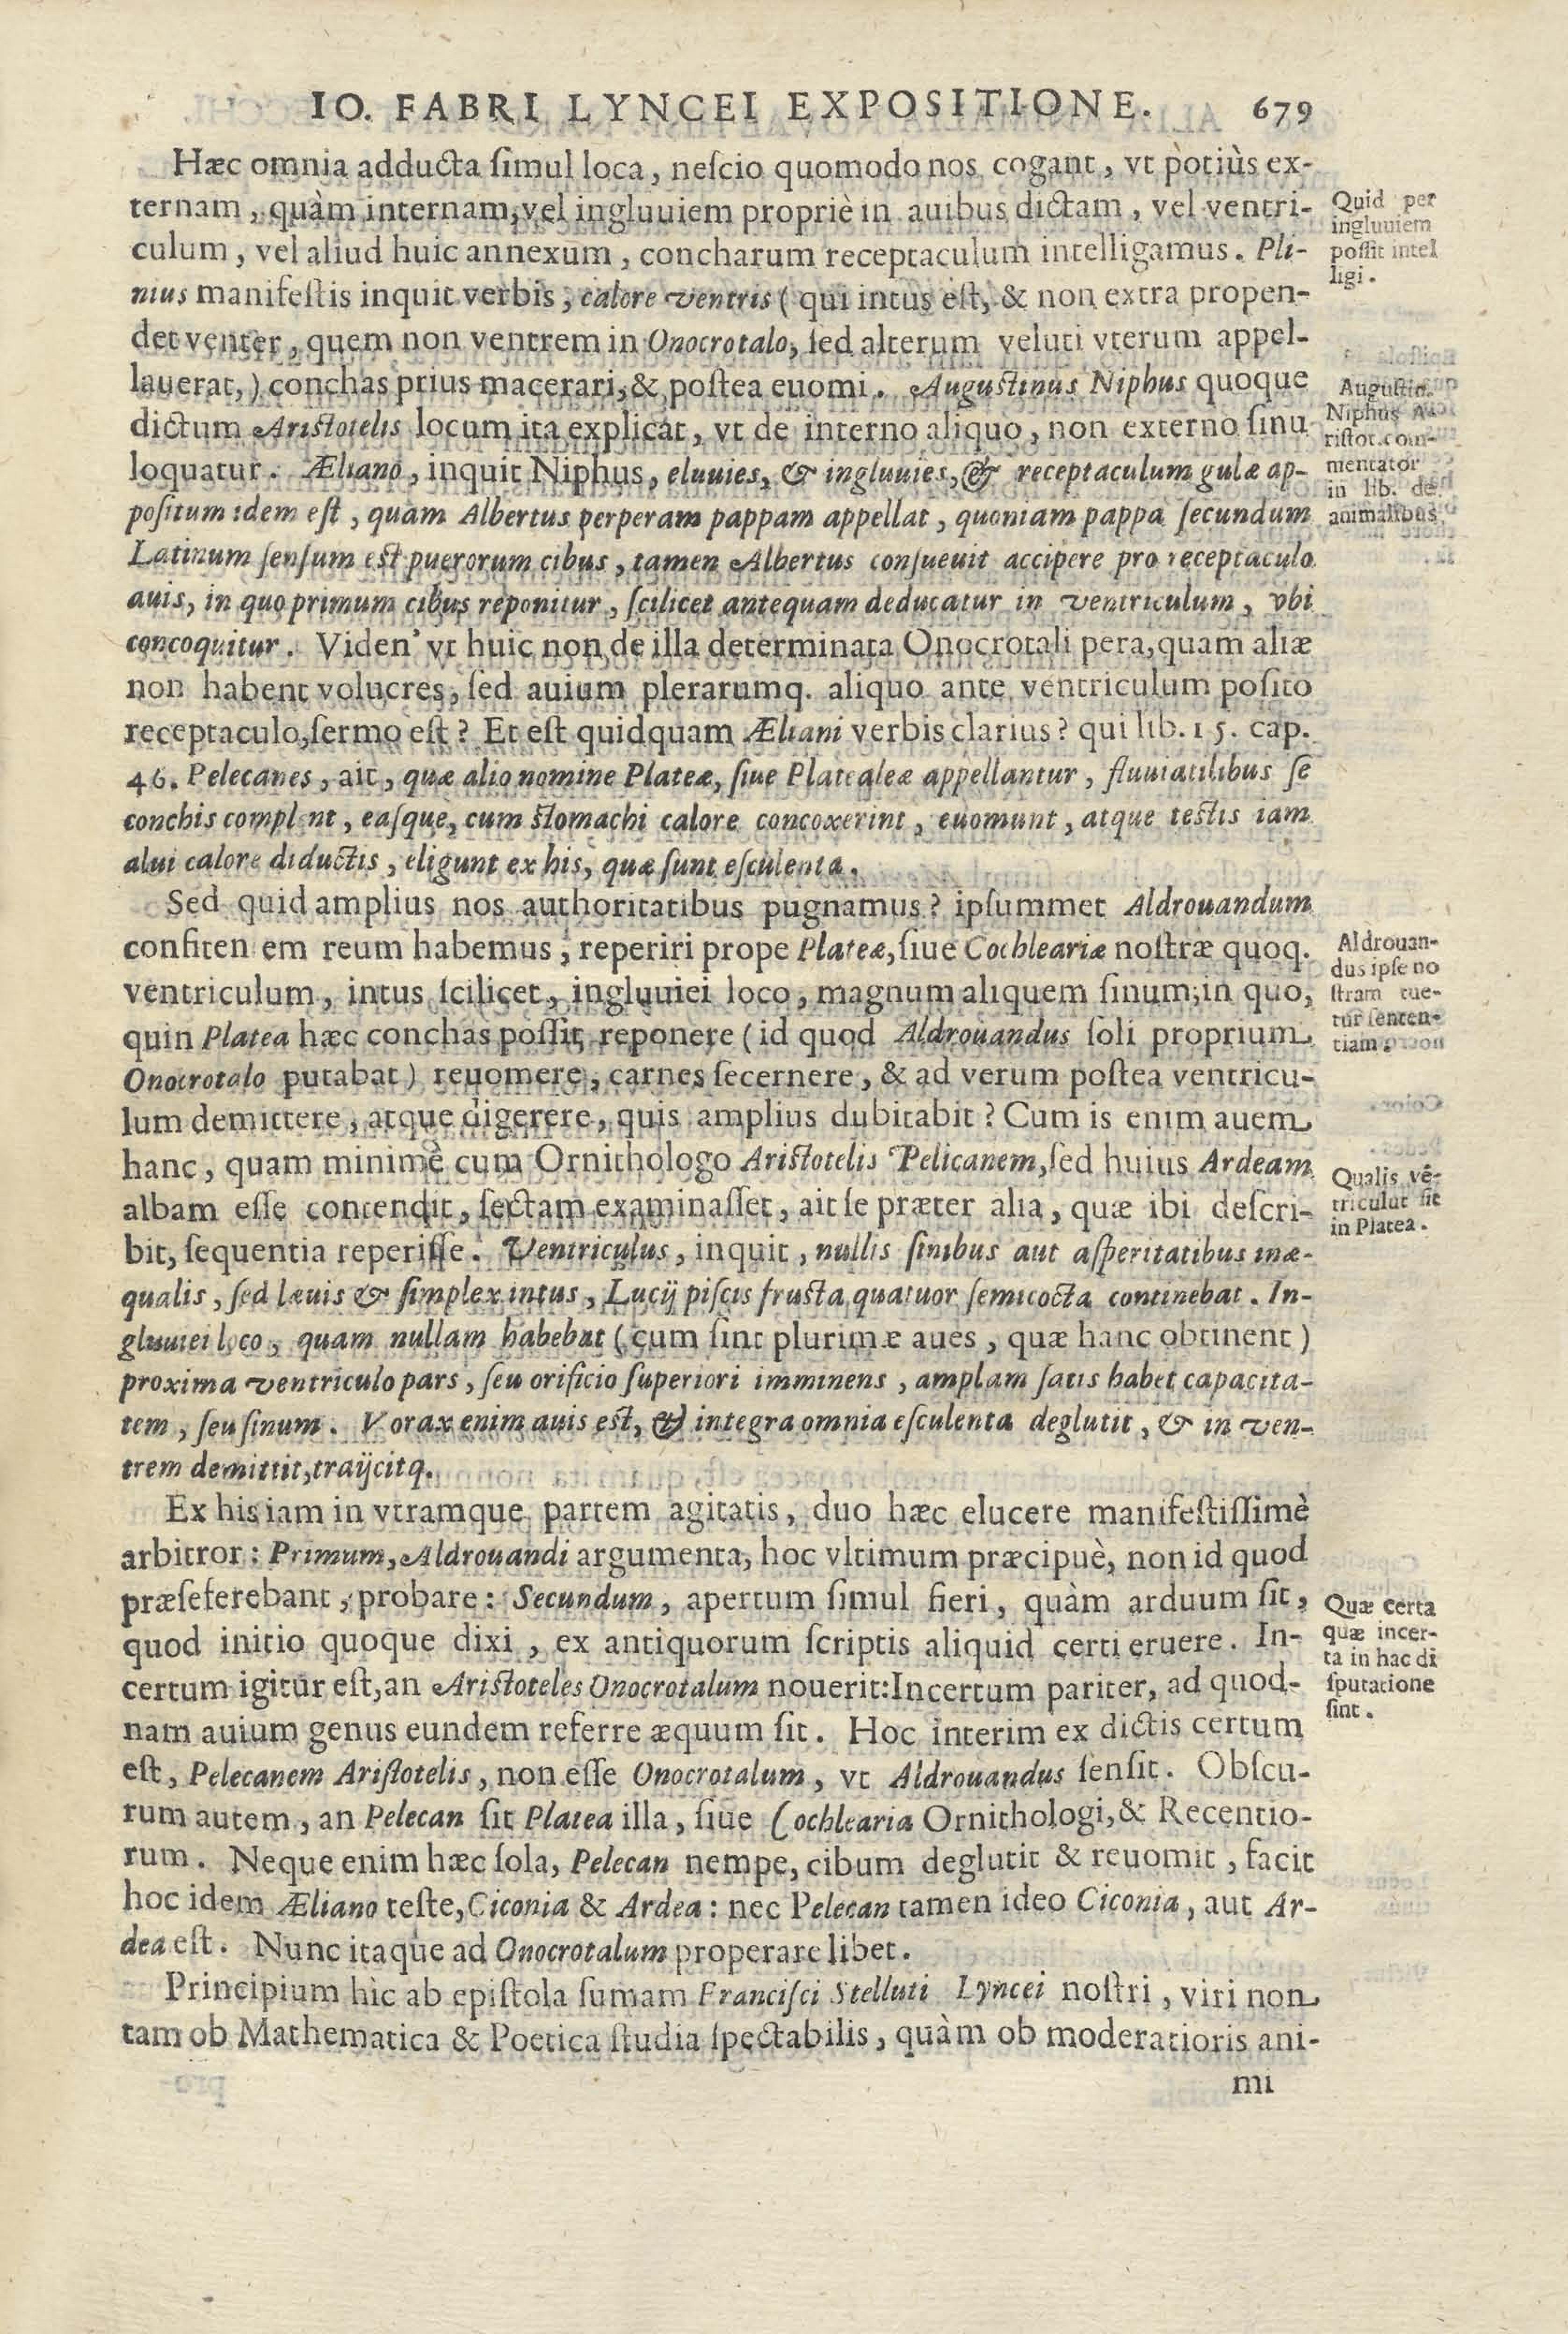 IO. FABRI LYNCEI EXPOSITIONE. 679
Hæc omnia adducta ſimul loca, neſcio quomodo nos cogant, vt potiùs ex-
ternam, quàm internam, vel ingluuiem propriè in auibus dictam, vel ventri-
culum, vel aliud huic annexum, concharum receptaculum intelligamus. Pli-
nius manifeſtis inquit verbis, calore ventris (qui intus eſt, & non extra propen-
det venter, quem non ventrem in Onocrotalo, ſed alterum veluti vterum appel-
lauerat,) conchas prius macerari, & poſtea euomi. Auguſtinus Niphus quoque
dictum Ariſtotelis locum ita explicat, vt de interno aliquo, non externo ſinu
loquatur. Æliano, inquit Niphus, eluuies, & ingluuies, & receptaculum gulæ ap-
poſitum idem eſt, quam Albertus perperam pappam appellat, quoniam pappa ſecundum
Latinum ſenſum eſt puerorum cibus, tamen Albertus conſueuit accipere pro receptaculo
auis, in quo primum cibus reponitur, ſcilicet antequam deducatur in ventriculum, vbi
concoquitur. Viden' vt huic non de illa determinata Onocrotali pera, quam aliæ
non habent volucres, ſed auium plerarumq. aliquo ante ventriculum poſito
receptaculo, ſermo eſt? Et eſt quidquam Æliani verbis clarius? qui lib. 15. cap.
46. Pelecanes, ait, quæ alio nomine Plateæ, ſiue Plateæleæ appellantur, fluuiatilibus ſe
conchis complent, eaſque, cum ſtomachi calore concoxerint, euomunt, atque teſtis iam
alui calore diductis, eligunt ex his, quæ ſunt eſculenta.
Sed quid amplius nos authoritatibus pugnamus? ipſummet Aldrouandum
confiten em reum habemus, reperiri prope Plateæ, ſiue Cochleariæ noſtræ quoq.
ventriculum, intus ſcilicet, ingluuiei loco, magnum aliquem ſinum, in quo,
quin Platea hæc conchas poſſit reponere (id quod Aldrouandus ſoli proprium
Onocrotalo putabat) reuomere, carnes ſecernere, & ad verum poſtea ventricu-
lum demittere, atque digerere, quis amplius dubitabit? Cum is enim auem
hanc, quam minimè cum Ornithologo Ariſtotelis Pelicanem, ſed huius Ardeam
albam eſſe contendit, ſectam examinaſſet, ait ſe præter alia, quæ ibi deſcri-
bit, ſequentia reperiſſe. Ventriculus, inquit, nullis ſinibus aut aſperitatibus inæ-
qualis, ſed læuis & ſimplex intus, Lucij piſcis fruſta quatuor ſemicocta continebat. In-
gluuiei loco, quam nullam habebat (cum ſint plurimæ aues, quæ hanc obtinent)
proxima ventriculo pars, ſeu orificio ſuperiori imminens, amplam ſatis habet capacita-
tem, ſeu ſinum. Vorax enim auis eſt, & integra omnia eſculenta deglutit, & in ven-
trem demittit, traijcitq.
Ex his iam in vtramque partem agitatis, duo hæc elucere manifeſtiſſimè
arbitror: Primum, Aldrouandi argumenta, hoc vltimum præcipuè, non id quod
præſeferebant, probare: Secundum, apertum ſimul fieri, quàm arduum ſit,
quod initio quoque dixi, ex antiquorum ſcriptis aliquid certi eruere. In-
certum igitur eſt, an Ariſtoteles Onocrotalum nouerit: Incertum pariter, ad quod-
nam auium genus eundem referre æquum ſit. Hoc interim ex dictis certum
eſt, Pelecanem Ariſtotelis, non eſſe Onocrotalum, vt Aldrouandus ſenſit. Obſcu-
rum autem, an Pelecan ſit Platea illa, ſiue Cochlearia Ornithologi, & Recentio-
rum. Neque enim hæc ſola, Pelecan nempe, cibum deglutit & reuomit, facit
hoc idem Æliano teſte, Ciconia & Ardea: nec Pelecan tamen ideo Ciconia, aut Ar-
dea eſt. Nunc itaque ad Onocrotalum properare libet.
Principium hìc ab epiſtola ſumam Franciſci Stelluti Lyncei noſtri, viri non
tam ob Mathematica & Poetica ſtudia ſpectabilis, quàm ob moderatioris ani-
mi
Quid per
ingluuiem
poſſit intel
ligi.
Auguſtin.
Niphus A
riſtot. com-
mentator
in lib. de
animalibus
Aldrouan-
dus ipſe no
ſtram tue-
tur ſenten-
tiam.
Qualis vē-
triculut ſit
in Platea.
Quæ certa
quæ incer-
ta in hac di
ſputatione
ſint.